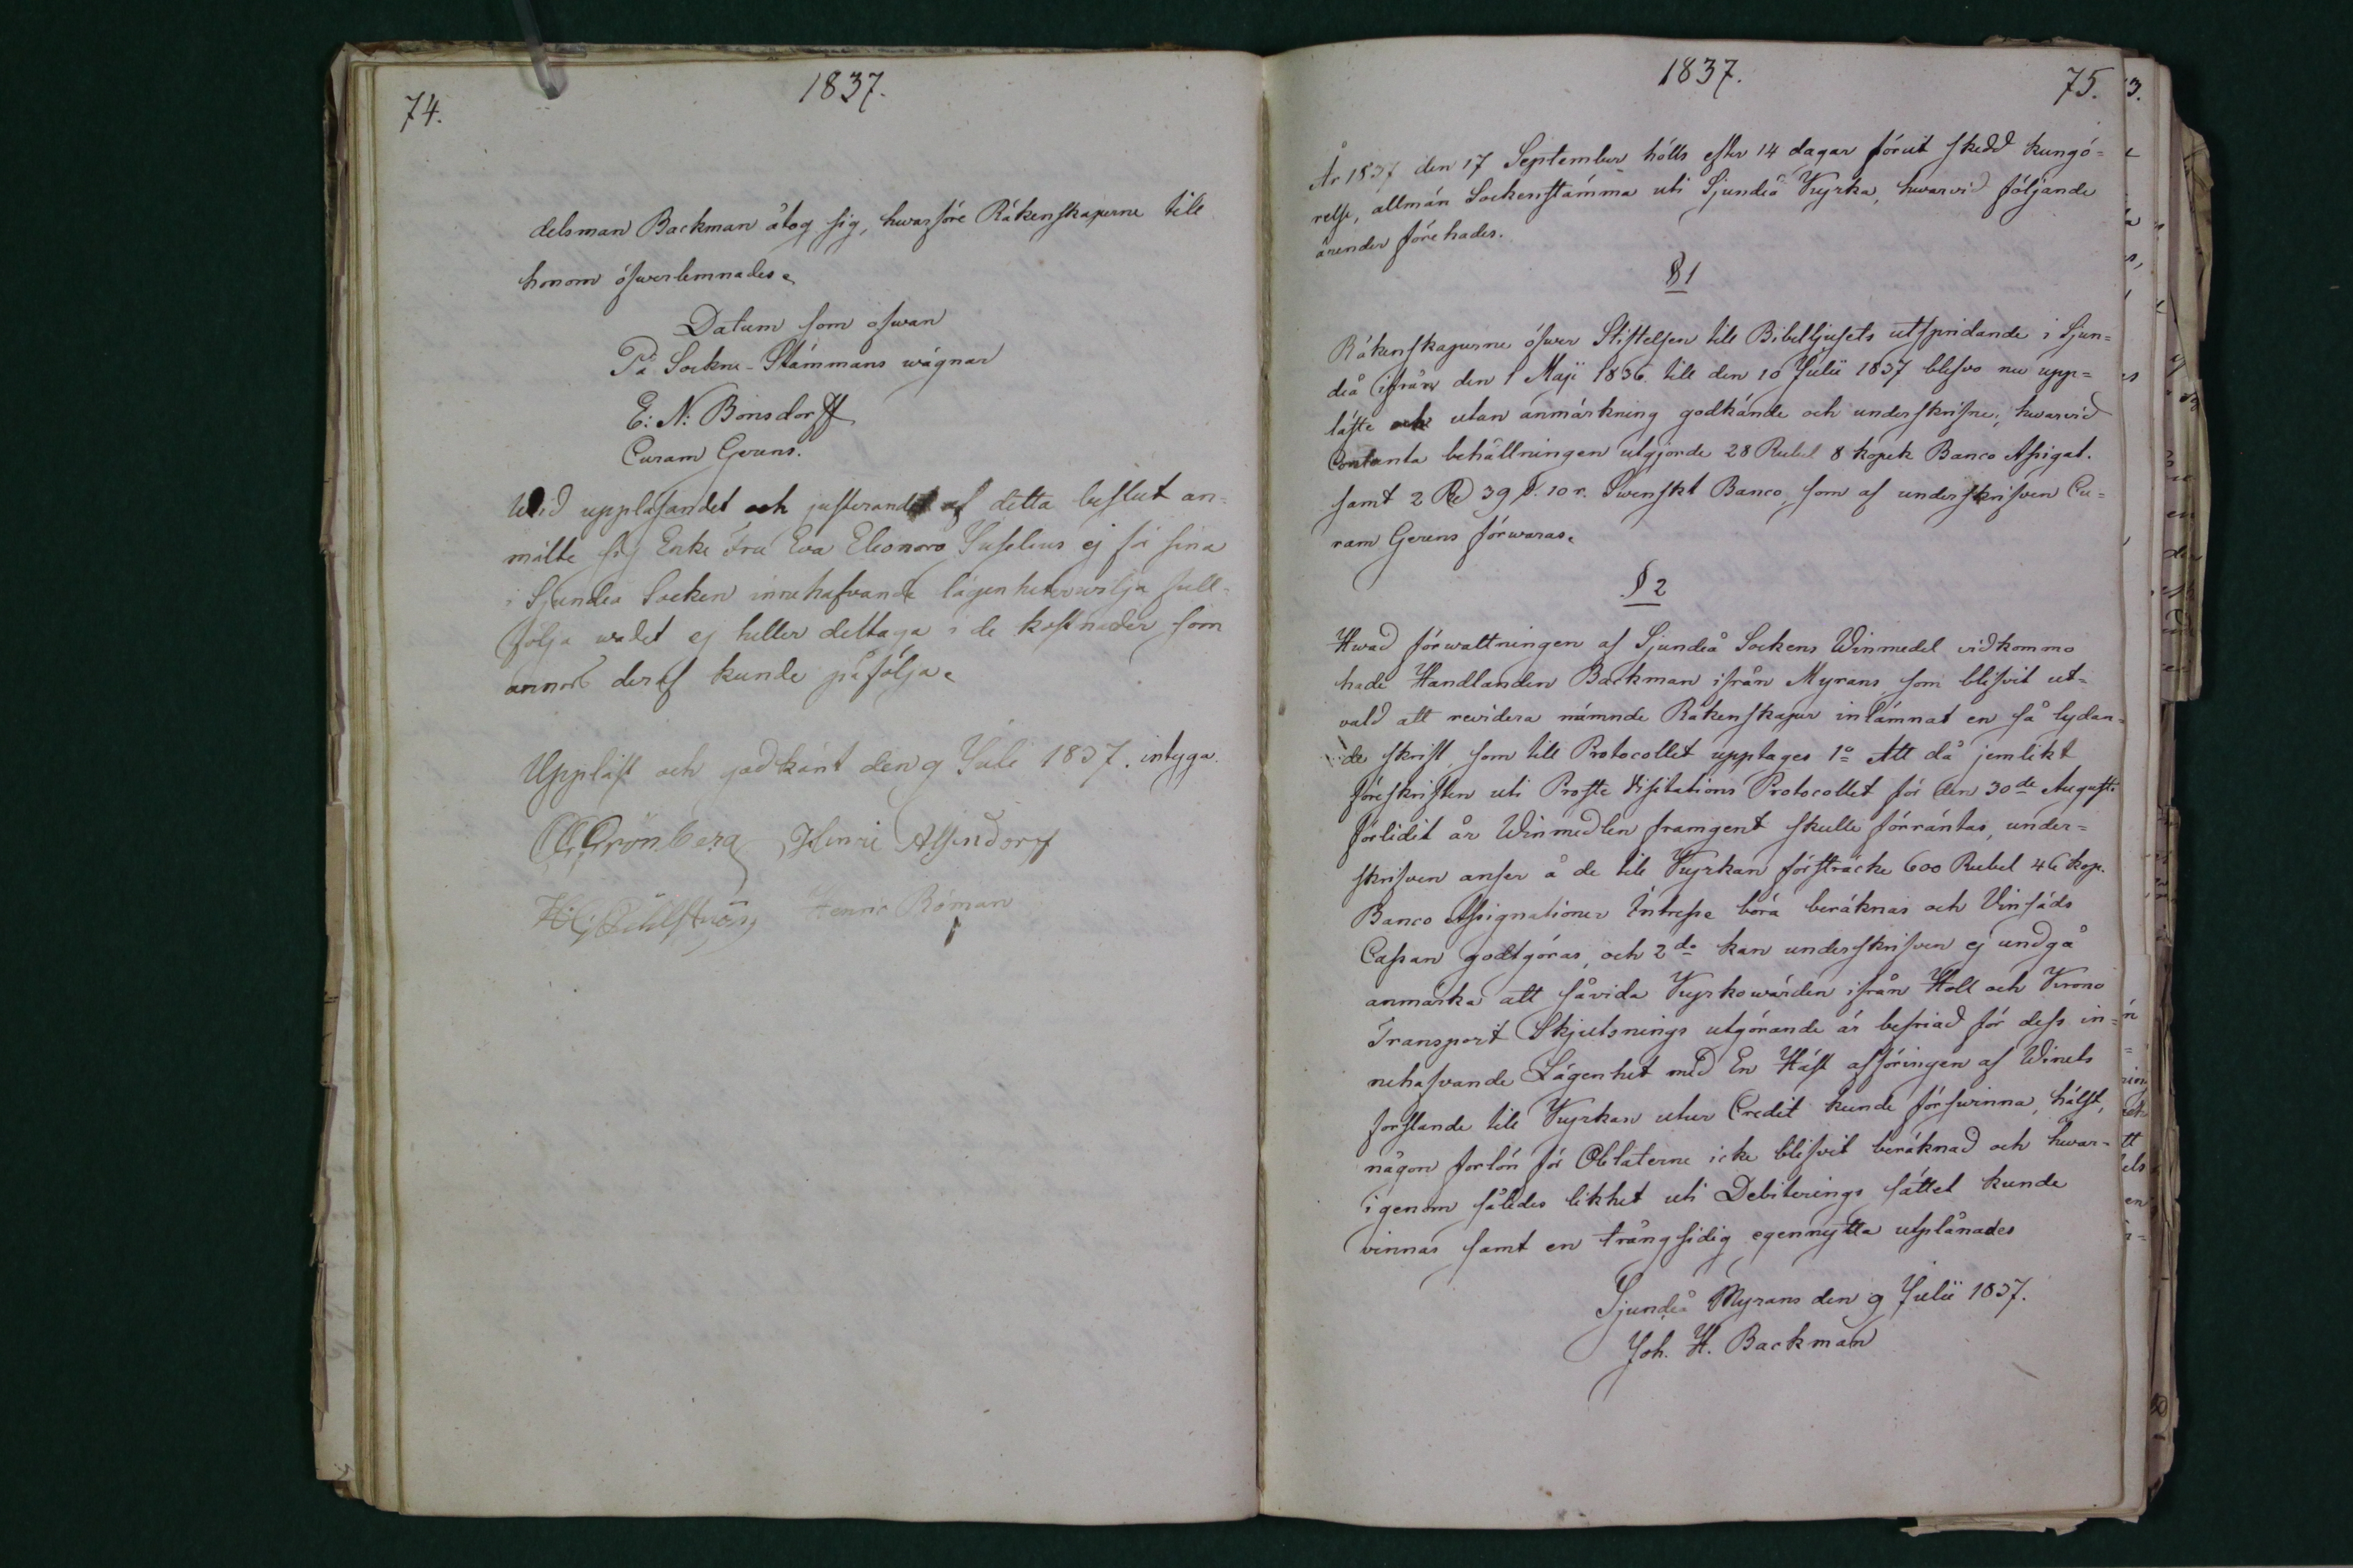 74.
1837.
delsman Backman åtog sig, hwarföre Räkenskaperne till
honom öfwerlemnades.
Datum som ofwan
På Sockne-Stämmans wägnar
E: N: Bonsdorff
Curam Gerens.
Wid uppläsandet och justerandet af detta beslut an-
mälte sig Enke Fru Eva Eleonora ej för sina
i Sjundeå Socken innehafvande lägenheter wilja full-
följa wadet ej heller deltaga i de kostnader som
deraf kunde påfölja.
Uppläst och godkänt den 9 Juli 1837. intyga
Grönberg Henric Alfendorf
Henric Röman
1837.
75.
År 1837 den 17 September hölls efter 14 dagar förut skedd kungö-
relse, allmän Sockenstämma uti Sjundeå Kyrka, hwarvid följande
ärender förehades.
§ 1
Räkenskaperne öfwer Stiftelsen till Bibelljusets utspridande i Sjun-
deå ifrån den 1 Maji 1836 till den 10 Julii 1837 blefvo nu upp-
läste och utan anmärkning godkände och underskrifne, hwarvid
Contanta behållningen utgjorde 28 Rubel 8 kopek Banco Assignat.
samt 2 Rd 39 s. 10 r. Swenskt Banco, som af underskrifven Cu-
ram Gerens förwaras.
§ 2
Hwad förwaltningen af Sjundeå Sockens Winmedel vidkommo
hade Handlanden Backman ifrån Myrans, som blifvit ut-
vald att revidera nämnde Räkenskaper inlämnat en så lydan-
de skrift, som till Protocollet upptages 1o Att då jemlikt
föreskriften uti Proste Visitations Protocollet för den 30de Augusti
förlidit år Winmedlen framgent skulle förräntas, under-
skrifven anser å de till Kyrkan försträckte 600 Rubel 46 kop.
Banco Assignationer Intresse böra beräknas och Vinsäds
Cassan godtgöras, och 2do kan underskrifven ej undgå
anmärka att såvida Kyrkowärden ifrån Håll och Krono
Transport Skjutsnings utgörande är befriad för dess in-
nehafvande Lägenhet med En Häst afföringen af Winets
forslande till Kyrkan utur Credit kunde försvinna, hälst,
någon forlön för Oblaterne icke blifvit beräknad och hwar-
igenom således likhet uti Debiterings sättet kunde
vinnas samt en trångsidig egennytta utplånades
Sjundeå Myrans den 9 Julii 1837.
Joh. H. Backman